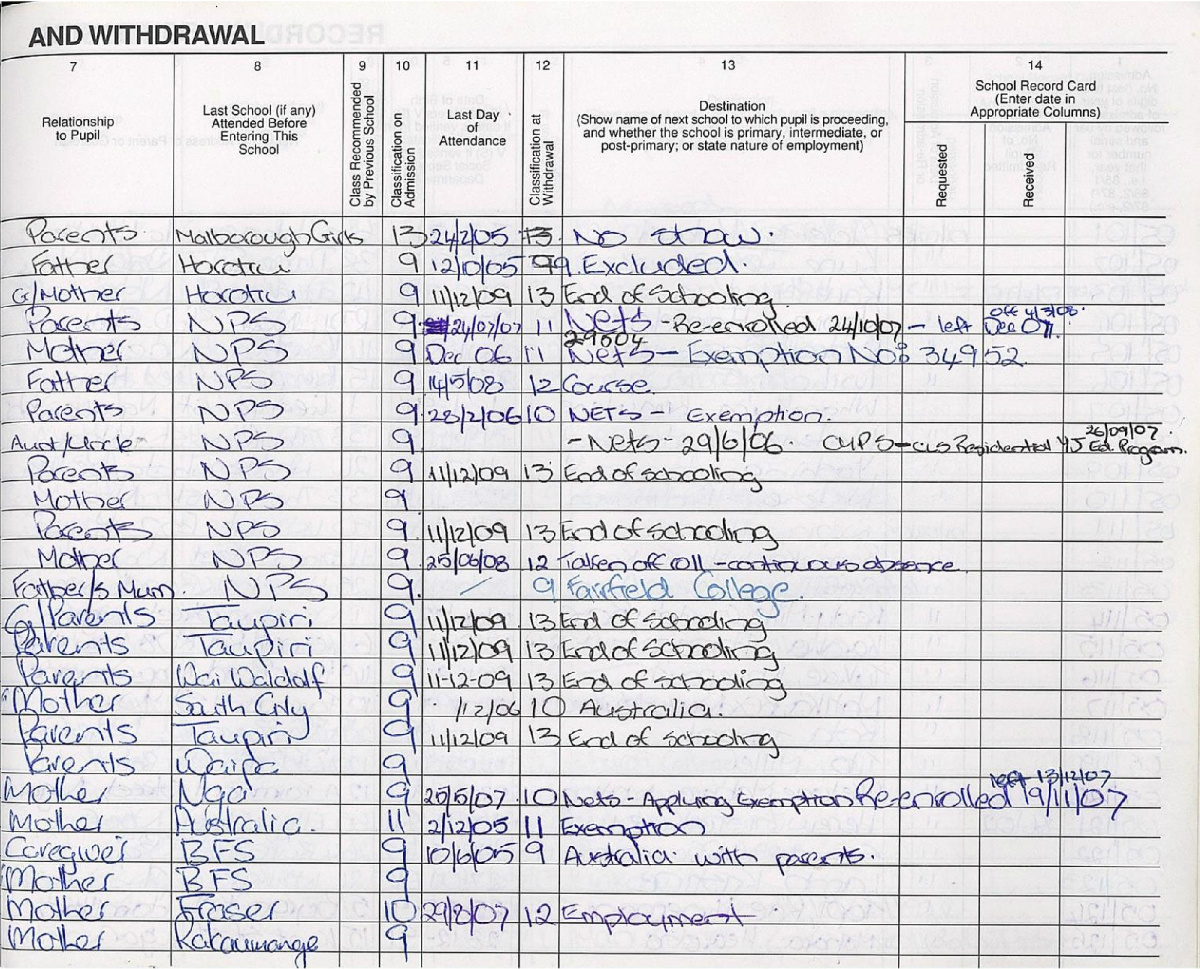 AND WITHDRAWAL
7 8 9 10 11 12 13 14
Relationship to Pupil
Last School (if any) Attended Before Entering This School
Class Recommended by Previous School
Classification on Admission
Last Day of Attendance
Classification at Withdrawal
Destination (Show name of next school to which pupil is proceeding, and whether the school is primary, intermediate, or post-primary; or state nature of employment)
School Record Card (Enter date in Appropriate Columns)
Requested
Received
Parents Malborough Girls 13 24/2/05 13. No show.
Father Horotiu 9 12/10/05 9. Excluded.
G/Mother Horotiu 9 11/12/09 13 End of Schooling
off 4/3/08.
Parents NPS 9 24/07/07 11 Nets - Re-enrolled 24/10/07 - left Dec 07.
29604
Mother NPS 9 Dec 06 11 Nets - Exemption No: 34952.
Father NPS 9 14/5/08 12 Course.
Parents NPS 9. 28/2/06 10 NETS - Exemption.
26/09/07.
Aunt/Uncle NPS 9 - Nets - 29/6/06. CYPS - Residential YJ Ed. Program.
Parents NPS 9 11/12/09 13 End of schooling
Mother NPS 9.
Parents NPS 9 11/12/09 13 End of Schooling
Mother NPS 9 25/06/08 12 Taken off roll - continuous absence.
Father/s Mum. NPS 9. 9 Fairfield College.
G/Parents Taupiri 9 11/12/09 13 End of Schooling
Parents Taupiri 9 11/12/09 13 End of Schooling
Parents Wai Waldalf 9 11-12-09 13 End of Schooling
Mother South City 9 /12/06 10 Australia.
Parents Taupiri 9 11/12/09 13 End of Schooling
Parents Waipa 9
left 13/12/07
Mother Nga 9 25/5/07 10 Nets - Applying Exemption Re-enrolled 19/11/07
Mother Australia. 11 2/12/05 11 Exemption
Caregiver BFS 9 10/6/05 9 Australia with parents.
Mother BFS 9
Mother Fraser 10 29/8/07 12 Employment
Mother 9